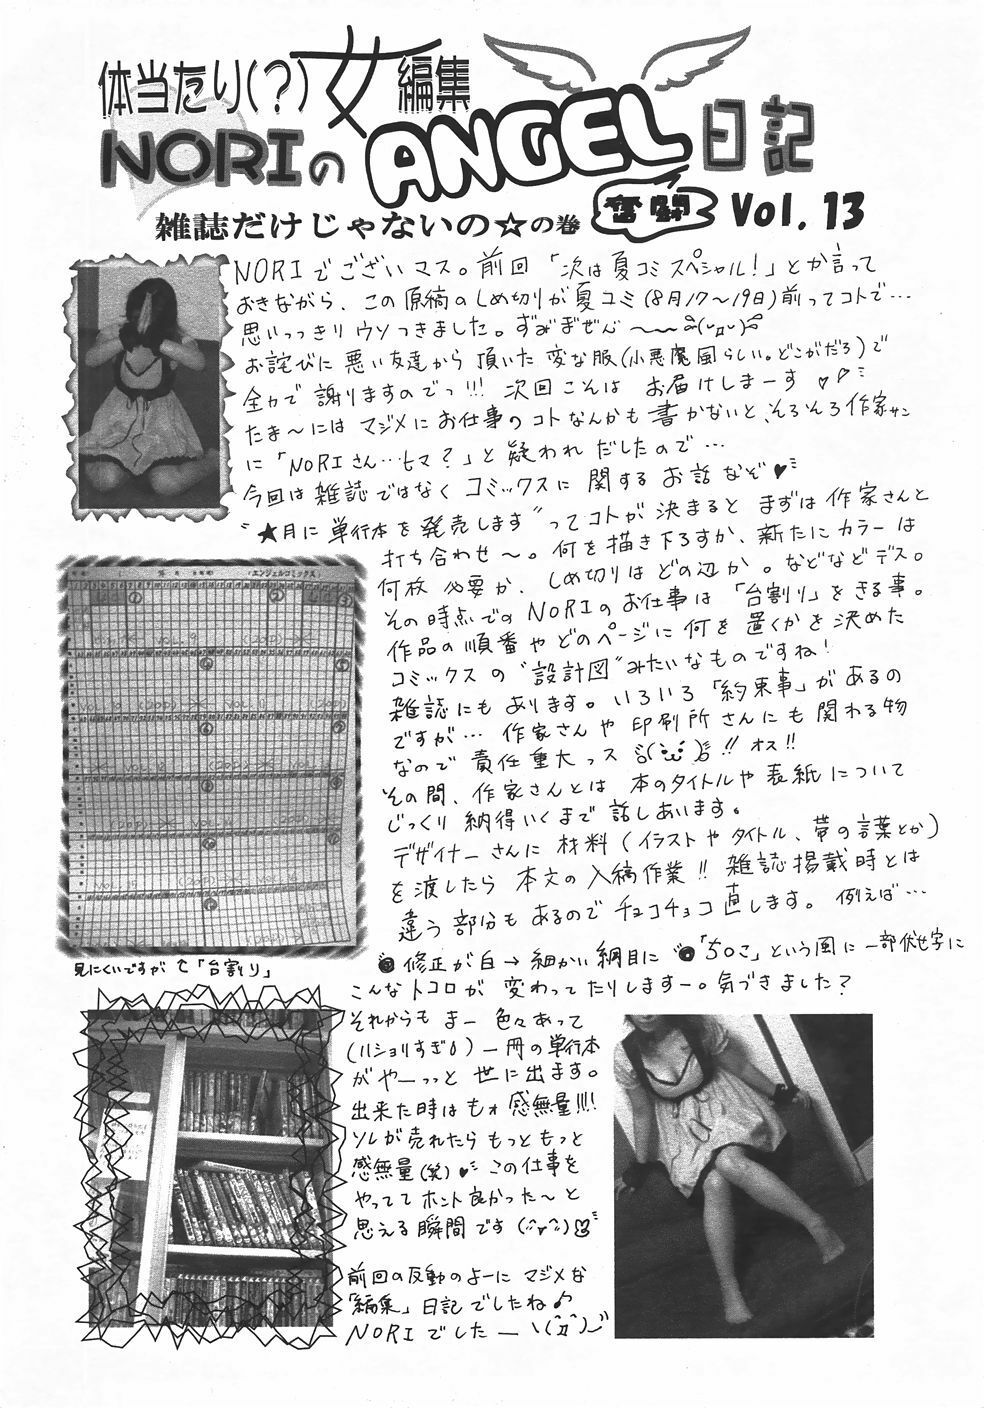 体当たり(?)女編集
NORIのANGEL日記
奮闘 Vol. 13
雑誌だけじゃないの☆の巻
NORIでございマス。前回「次は夏コミスペシャル!」とか言って
おきながら、この原稿のしめ切りが夏コミ(8月17〜19日)前ってコトで…
思いっっきりウソつきました。ずみまぜん〜〜
お詫びに悪い友達から頂いた変な服(小悪魔風らしい。どこがだろ)で
全力で謝りますのでっ!!! 次回こそは お届けしまーす♡
たま〜にはマジメにお仕事のコトなんかも書かないと、そろそろ作家サン
に「NORIさん…ヒマ?」と疑われだしたので…
今回は雑誌ではなくコミックスに関するお話なぞ♥
"★月に単行本を発売します"ってコトが決まるとまずは作家さんと
打ち合わせ〜。何を描き下ろすか、新たにカラーは
何枚必要か、しめ切りはどの辺か。などなどデス。
その時点でのNORIのお仕事は「台割り」をきる事。
作品の順番やどのページに何を置くかを決めた
コミックスの"設計図"みたいなものですね!
雑誌にもあります。いろいろ「約束事」があるの
ですが… 作家さんや印刷所さんにも関わる物
なので責任重大っス!! オス!!
その間、作家さんとは本のタイトルや表紙について
じっくり納得いくまで話しあいます。
デザイナーさんに材料(イラストやタイトル、帯の言葉とか)
を渡したら本文の入稿作業!! 雑誌掲載時とは
違う部分もあるのでチョコチョコ直します。例えば…
修正が白→細かい網目に 「ち○こ」という風に一部伏せ字に
こんなトコロが変わってたりしますー。気づきました?
見にくいですが↑「台割り」
エンジェルコミックス
それからもまー色々あって
(ハショりすぎ) 一冊の単行本
がやーっっと世に出ます。
出来た時はもォ感無量!!!!
ソレが売れたらもっともっと
感無量(笑)♥ この仕事を
やっててホント良かった〜と
思える瞬間です
前回の反動のよーにマジメな
「編集」日記でしたね♪
NORIでしたー